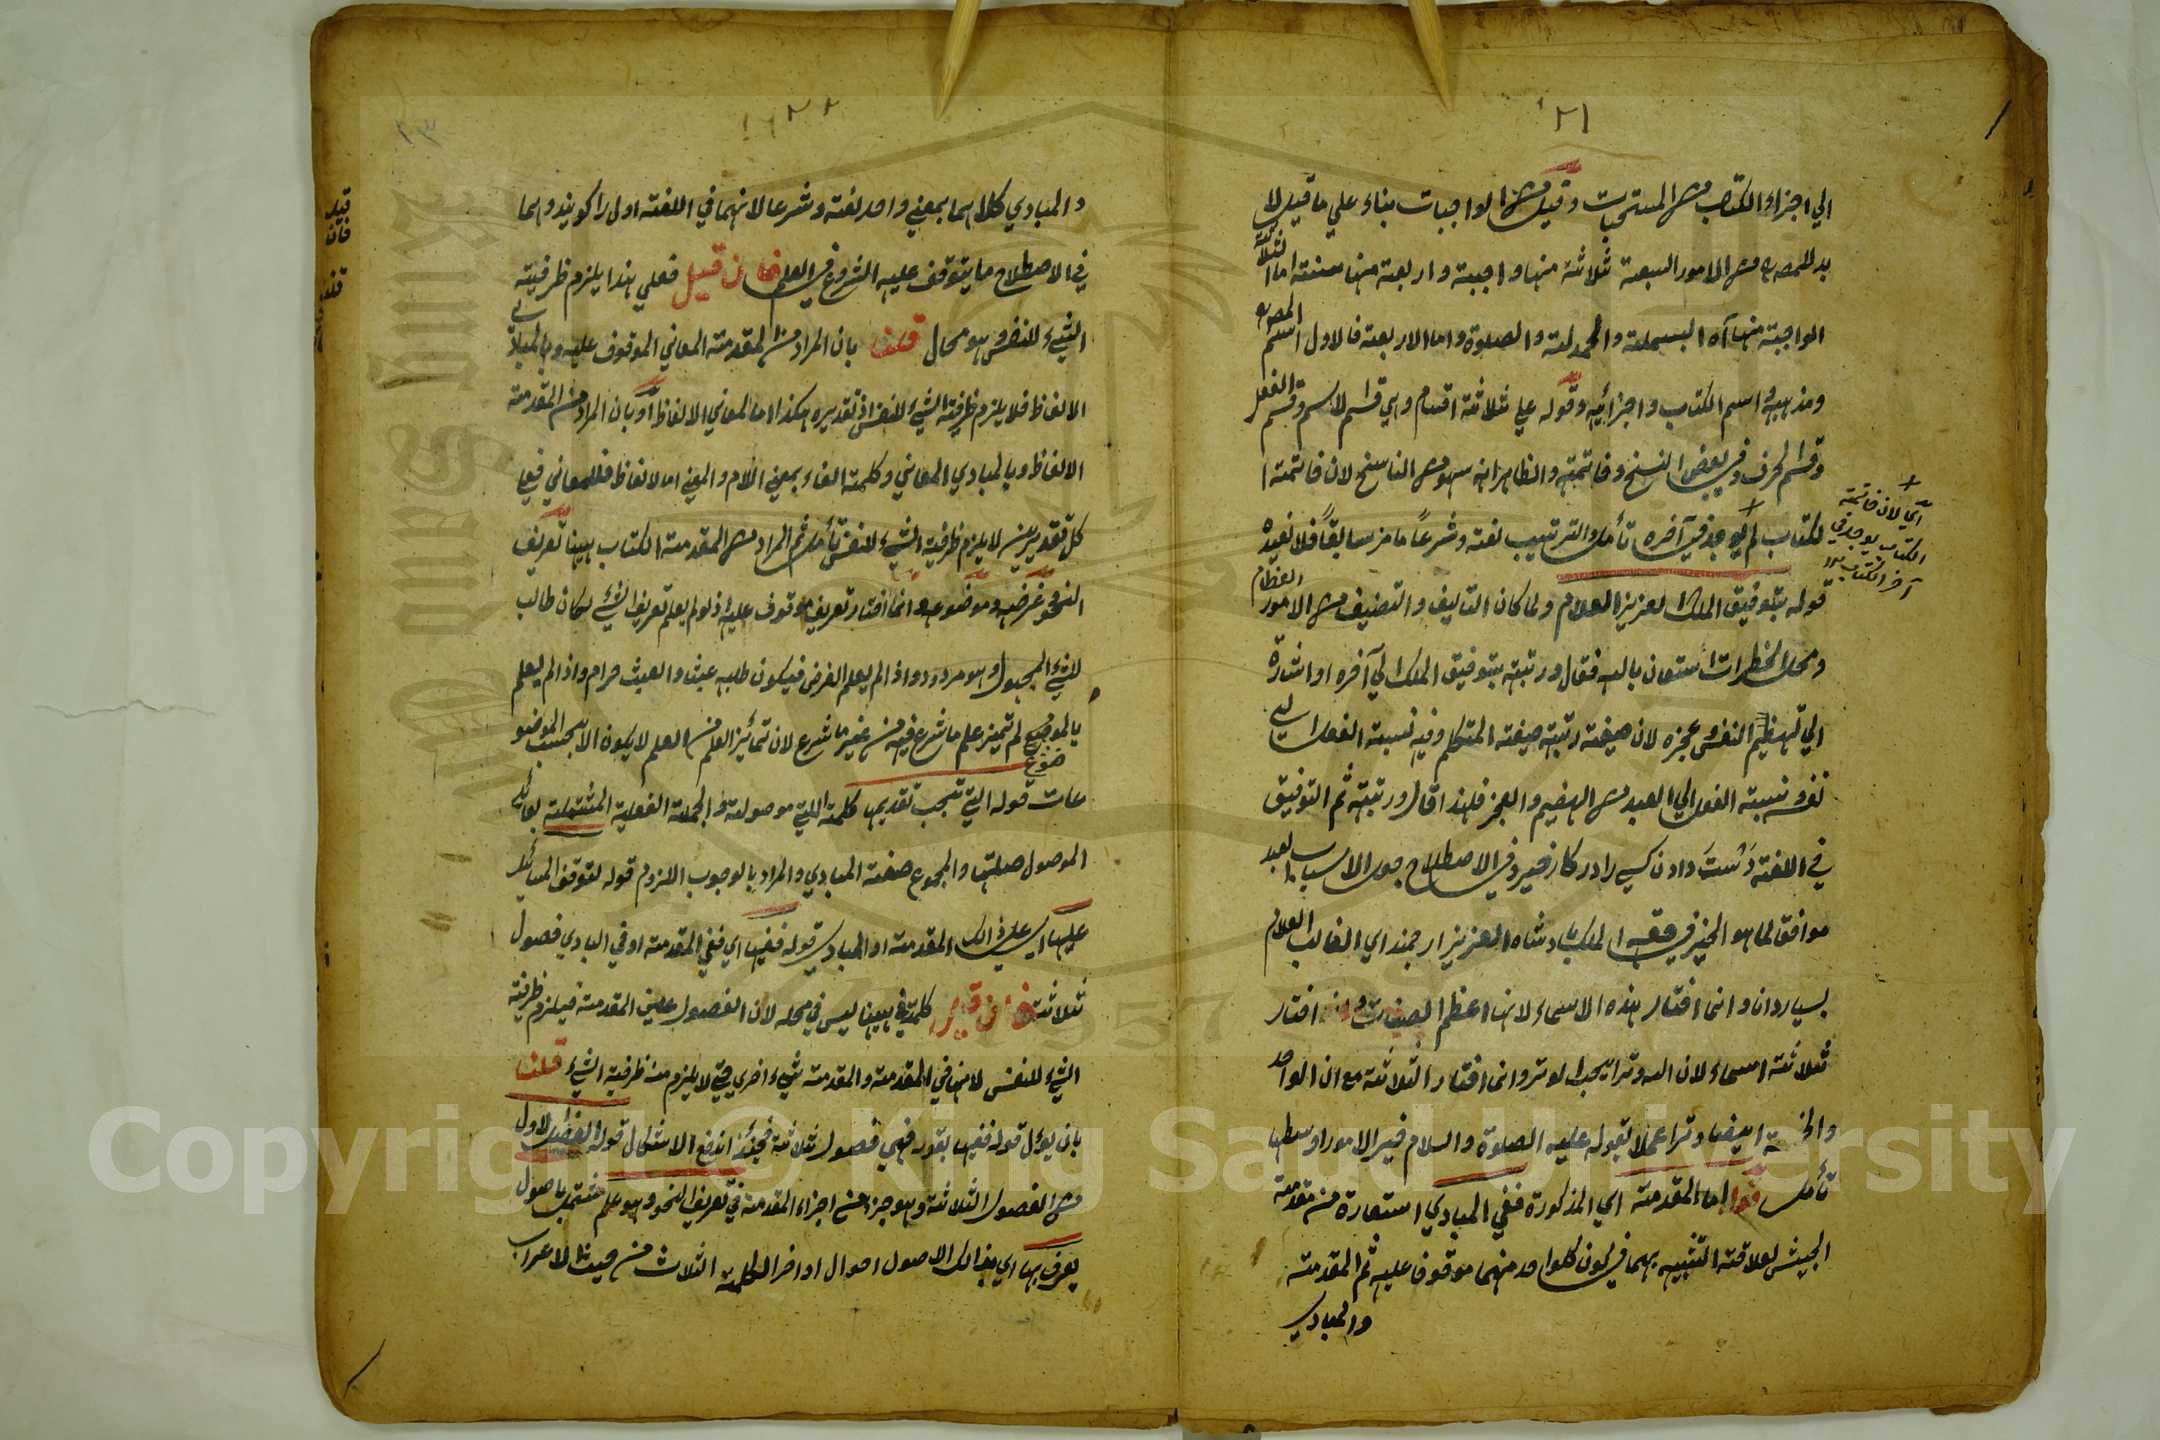 ٢١
الي اجزاء الكتاب من المستحبات وقيل من الواجبات بناء علي ما قيل لا
بد للمصنف من الامور السبعة ثلاثة منها واجبة واربعة منها سنة اما الثلاثة
الواجبة منها البسملة والحمدلة والصلوة واما الاربعة فالاول اسم المصنف
ومذهبه واسم الكتاب واجزائه وقوله علي ثلاثة اقسام وهي قسم الاسم وقسم الفعل
وقسم الحرف وفي بعض النسخ وخاتمته والظاهر انه سهو من الناسخ لان خاتمة ا
لكتاب لم يوجد في آخره تأمل والترتيب لغة وشرعاً ما مر سابقاً فلا نعيده
اي لان خاتمة
الكتاب يوجد في
آخر الكتاب
قوله بتوفيق الملك العزيز العلام ولما كان التاليف والتصنيف من الامور العظام
ومحل الخطرات استعان بالله فقال ورتبته بتوفيق الملك الي آخره او اشارة
الي تهضيم النفس وعجزه لان صيغة رتبته صيغة المتكلم وفيه نسبة الفعل الي
نفسه ونسبة الفعل الي العبد من الهضيم والعجز فلهذا قال ورتبته ثم التوفيق
في اللغة دَسْتَ دادن كسي را در كار خير وفي الاصطلاح جعل الاسباب لعبد
موافقا لما هو الخير في حقه الملك پادشاه العزيز ارجمند اي الغالب العلام
بسيار دان وانما اختار هذه الاسماء لانها اعظم الصفات وانما اختار
ثلاثة اسماء لان الله وتر يحب الوتر وانما اختار الثلاثة مع ان الواحد
ايضا وترا عملا بقوله عليه الصلوة والسلام خير الامور اوسطها
تأمل قوله اما المقدمة اي المذكورة ففي المبادي استعارة من مقدمة
الجيش لعلاقة التشبيه بهما في كون كل واحد منهما موقوفا عليه ثم المقدمة
والمبادي
٢٢
والمبادي كلاهما بمعني واحد لغة وشرعا لانهما في اللغة اول را كويند وهما
في الاصطلاح ما يتوقف عليه الشروع في العلم فان قيل فعلي هذا يلزم ظرفية
الشيء لنفس وهو محال قلنا بان المراد من المقدمة المعاني الموقوف عليه وبالمبادي
الالفاظ فلا يلزم ظرفية الشيء لنفس اذ تقديره هكذا اما المعاني الالفاظ او بان المراد من المقدمة
الالفاظ وبالمبادي المعاني وكلمة الفاء بمعني اللام والمعني اما لالفاظ فللمعاني فعلي
كل تقديرين لا يلزم ظرفية الشيء لنفس تأمل ثم المراد من المقدمة الكتاب ههنا تعريف
النحو وغرضه وموضوعه وانما اختار تعريف موقوف عليه اذ لو لم يعلم تعريف الشيء لكان طالب
للشيء المجهول وهو مردود واذا لم يعلم الغرض فيكون طلبه عبث والعبث حرام واذا لم يعلم
بالموضوع لم تميز علم ما شرع فيه من غير ما شرع لان تمائز العلم من العلم لا يكون الا بحسب الموضو
عات قوله التي تجب تقديمها كلمة التي موصولة والجملة الفعلية المشتملة بعائد
الموصول صلتها والمجموع صفة المبادي والمراد بالوجوب اللزوم قوله لتوقف المسائل
عليها اي علي ذالك المقدمة او المبادي قوله ففيها اي ففي المقدمة او في المبادي فصول
ثلاثة فان قيل كلمة في ههنا ليس في محله لان الفصول عين المقدمة فيلزم ظرفية
الشيء لنفس لانها في المقدمة والمقدمة شيء اخري حتي لا يلزم منه ظرفية الشيء قلنا
بان يؤل قوله ففيها بقوله فهي فصول ثلاثة فحينئذ اندفع الاشكال قوله الفصل الاول
من الفصول الثلاثة وهو جزء من اجزاء المقدمة في تعريف النحو وهو علم باصول
يعرف بها اي بذالك الاصول احوال اواخر الكلمة الثلاث من حيث الاعراب
قيل
فان
Copyright © King Saud University
1957